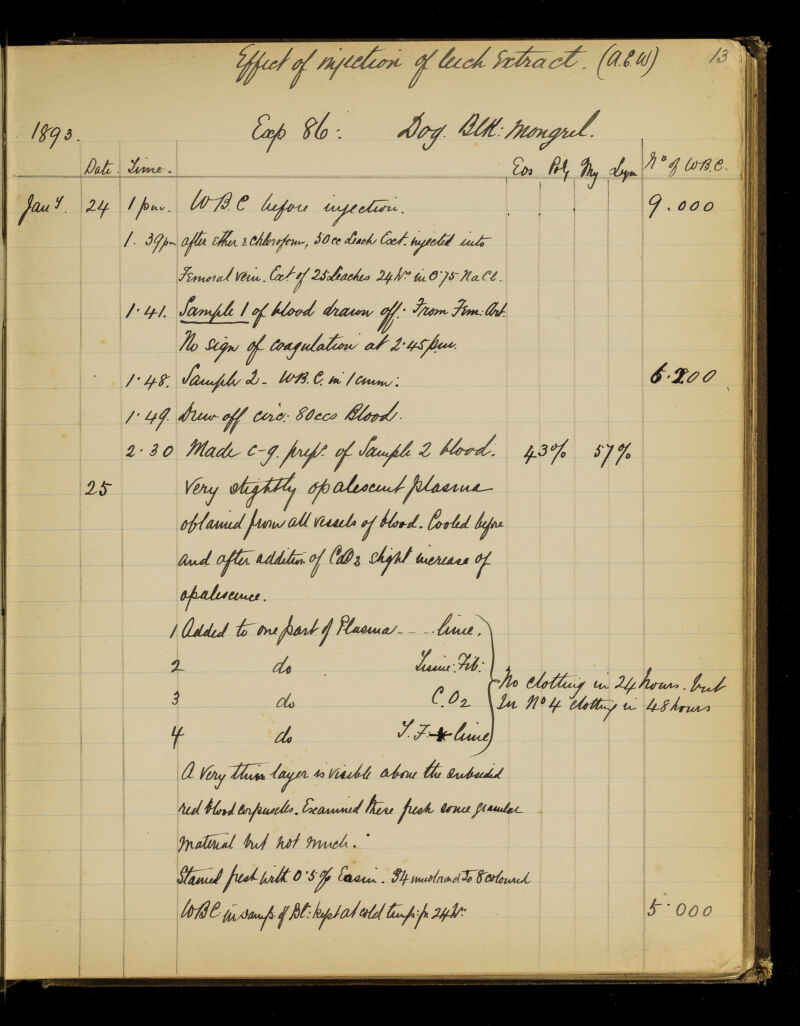 Effect of injection of leech extract. (A.E.W) 13
1893. Exp 86: Dog. Blk: Mongrel.
Date. Time. Eos Poly My Lym No of W.B.C.
Jan y. 24 1 pm. W.B.C before injection. 9.000
1.39pm after Ether & chloroform, 50cc Leech Ext. injected into
Femoral vein. Ext of 25 Leaches 24 hrs in 0.75 NaCl.
1.41. Sample 1 of blood drawn off. From Fem: Art.
No sign of coagulation at 2.45 p.m.
1.48. Sample 2 - W.B.C. in 1 cmm:
1.49. Drew off circ: 80ccs Blood.
2.30 Made c-g. prepn. of Sample 2 blood. 43% 57%
25 Very slightly opalescent plasma
obtained from all vessels of blood. Cooled before
and after addition of CO2 slight increase of
opalescence.
1 Added to one part of Plasma --- lime.
2 do Tissue: Fib:
3 do C.O2
4 do T.F. lime
No clotting in 24 hours. but
In No 4 clotting in 48 hours
A very thin layer is visible above the subsided
red blood corpuscles. Examined these fresh some granular
material but not much.
Stained fresh with 0.5% Eosin. 34 uncoloured to 8 coloured
WBC in samp: of Bl: kept at cold temp: for 24 hrs 5.000